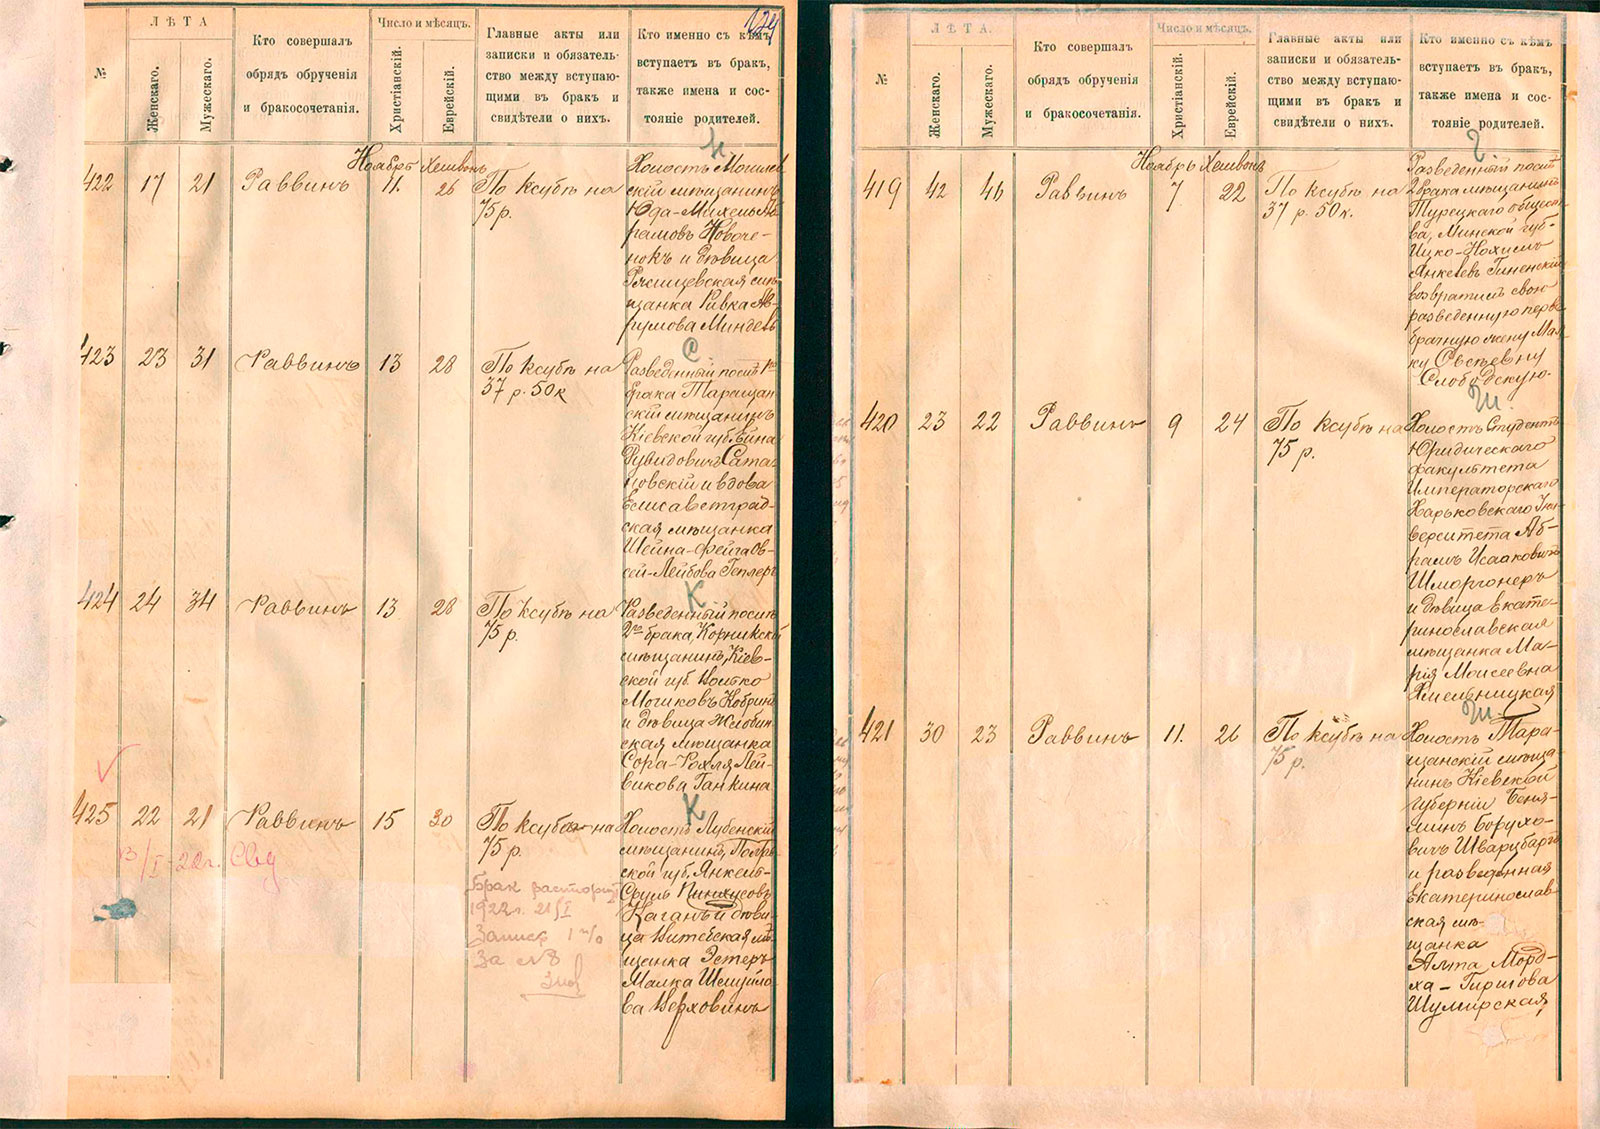 124
№
ЛѢТА
Женскаго.
Мужескаго.
Кто совершалъ
обрядъ обрученія
и бракосочетанія.
Число и мѣсяцъ.
Христіанскій.
Еврейскій.
Главные акты или
записки и обязатель-
ство между вступаю-
щими въ бракъ и
свидѣтели о нихъ.
Кто именно съ кѣмъ
вступаетъ въ бракъ,
также имена и сос-
тояніе родителей.
Ноябрь Хешвонъ
422 17 21 Раввинъ 11. 26 По ксубѣ на
75 р.
Холостъ Могилев
скій мѣщанинъ
Юда-Михель Аб
рамовъ Новоче-
нокъ и дѣвица
мѣ
щанка Ривка Ав-
румова Миндель
С
423 23 31 Раввинъ 13 28 По ксубѣ на
37 р. 50 к
Разведенный послѣ 1го
брака Таращан
скій мѣщанинъ
Кіевской губ. Ейна
Рувидовичъ Сата-
новскій и вдова
Елисаветград-
ская мѣщанка
Шейна-Фейга Ов-
сей-Лейбова Геплеръ
К
424 24 34 Раввинъ 13 28 По ксубѣ на
75 р.
Разведенный послѣ
2го брака, Корнинскій
мѣщанинъ, Кіев-
ской губ.
Кобрин
и дѣвица Жлобин
ская мѣщанка
Сора-Рохля Лей-
викова Ганкина
К
425 22 21 Раввинъ 15 30 По ксубѣ на
75 р.
Холостъ Лубенскій
мѣщанинъ, Полтав-
ской губ. Янкель-
Сруль Пинхусовъ
Каганъ и дѣви-
ца Витебская мѣ-
щанка Эстеръ
Малка Шмуйло-
ва Верховинъ
13/I-22г.
Брак расторгн
1922г. 21/I
Запись
За №8
№
ЛѢТА.
Женскаго.
Мужескаго.
Кто совершалъ
обрядъ обрученія
и бракосочетанія.
Число и мѣсяцъ.
Христіанскій.
Еврейскій.
Главные акты или
записки и обязатель-
ство между вступаю-
щими въ бракъ и
свидѣтели о нихъ.
Кто именно съ кѣмъ
вступаетъ въ бракъ,
также имена и сос-
тояніе родителей.
Ноябрь Хешвонъ
419 42 46 Раввинъ 7 22 По ксубѣ на
37 р. 50 к.
Разведенный послѣ
2 брака мѣщанинъ
Турецкаго общест-
ва, Минской губ-
Ицко-Нохимъ
Янкелевъ Гиненскій
возвратилъ свою
разведенную перво
брачную жену Мал-
ку Овсѣевну
Слободскую.
Ш.
420 23 22 Раввинъ 9 24 По ксубѣ на
75 р.
Холостъ Студентъ
Юридическаго
факультета
Императорскаго
Харьковскаго Уни-
верситета Аб-
рамъ Исааковичъ
Шморгонеръ
и дѣвица Екате-
ринославская
мѣщанка Ма-
рія Моисеевна
Хмельницкая
Ш.
421 30 23 Раввинъ 11. 26 По ксубѣ на
75 р.
Холостъ Тара-
щанскій мѣща
нинъ Кіевской
губерніи Беня-
минъ Борухо-
вичъ Шварцбургъ
и разведенная
Екатеринослав-
ская мѣ-
щанка
Алта Морд-
ха-Гиршова
Шумирская,